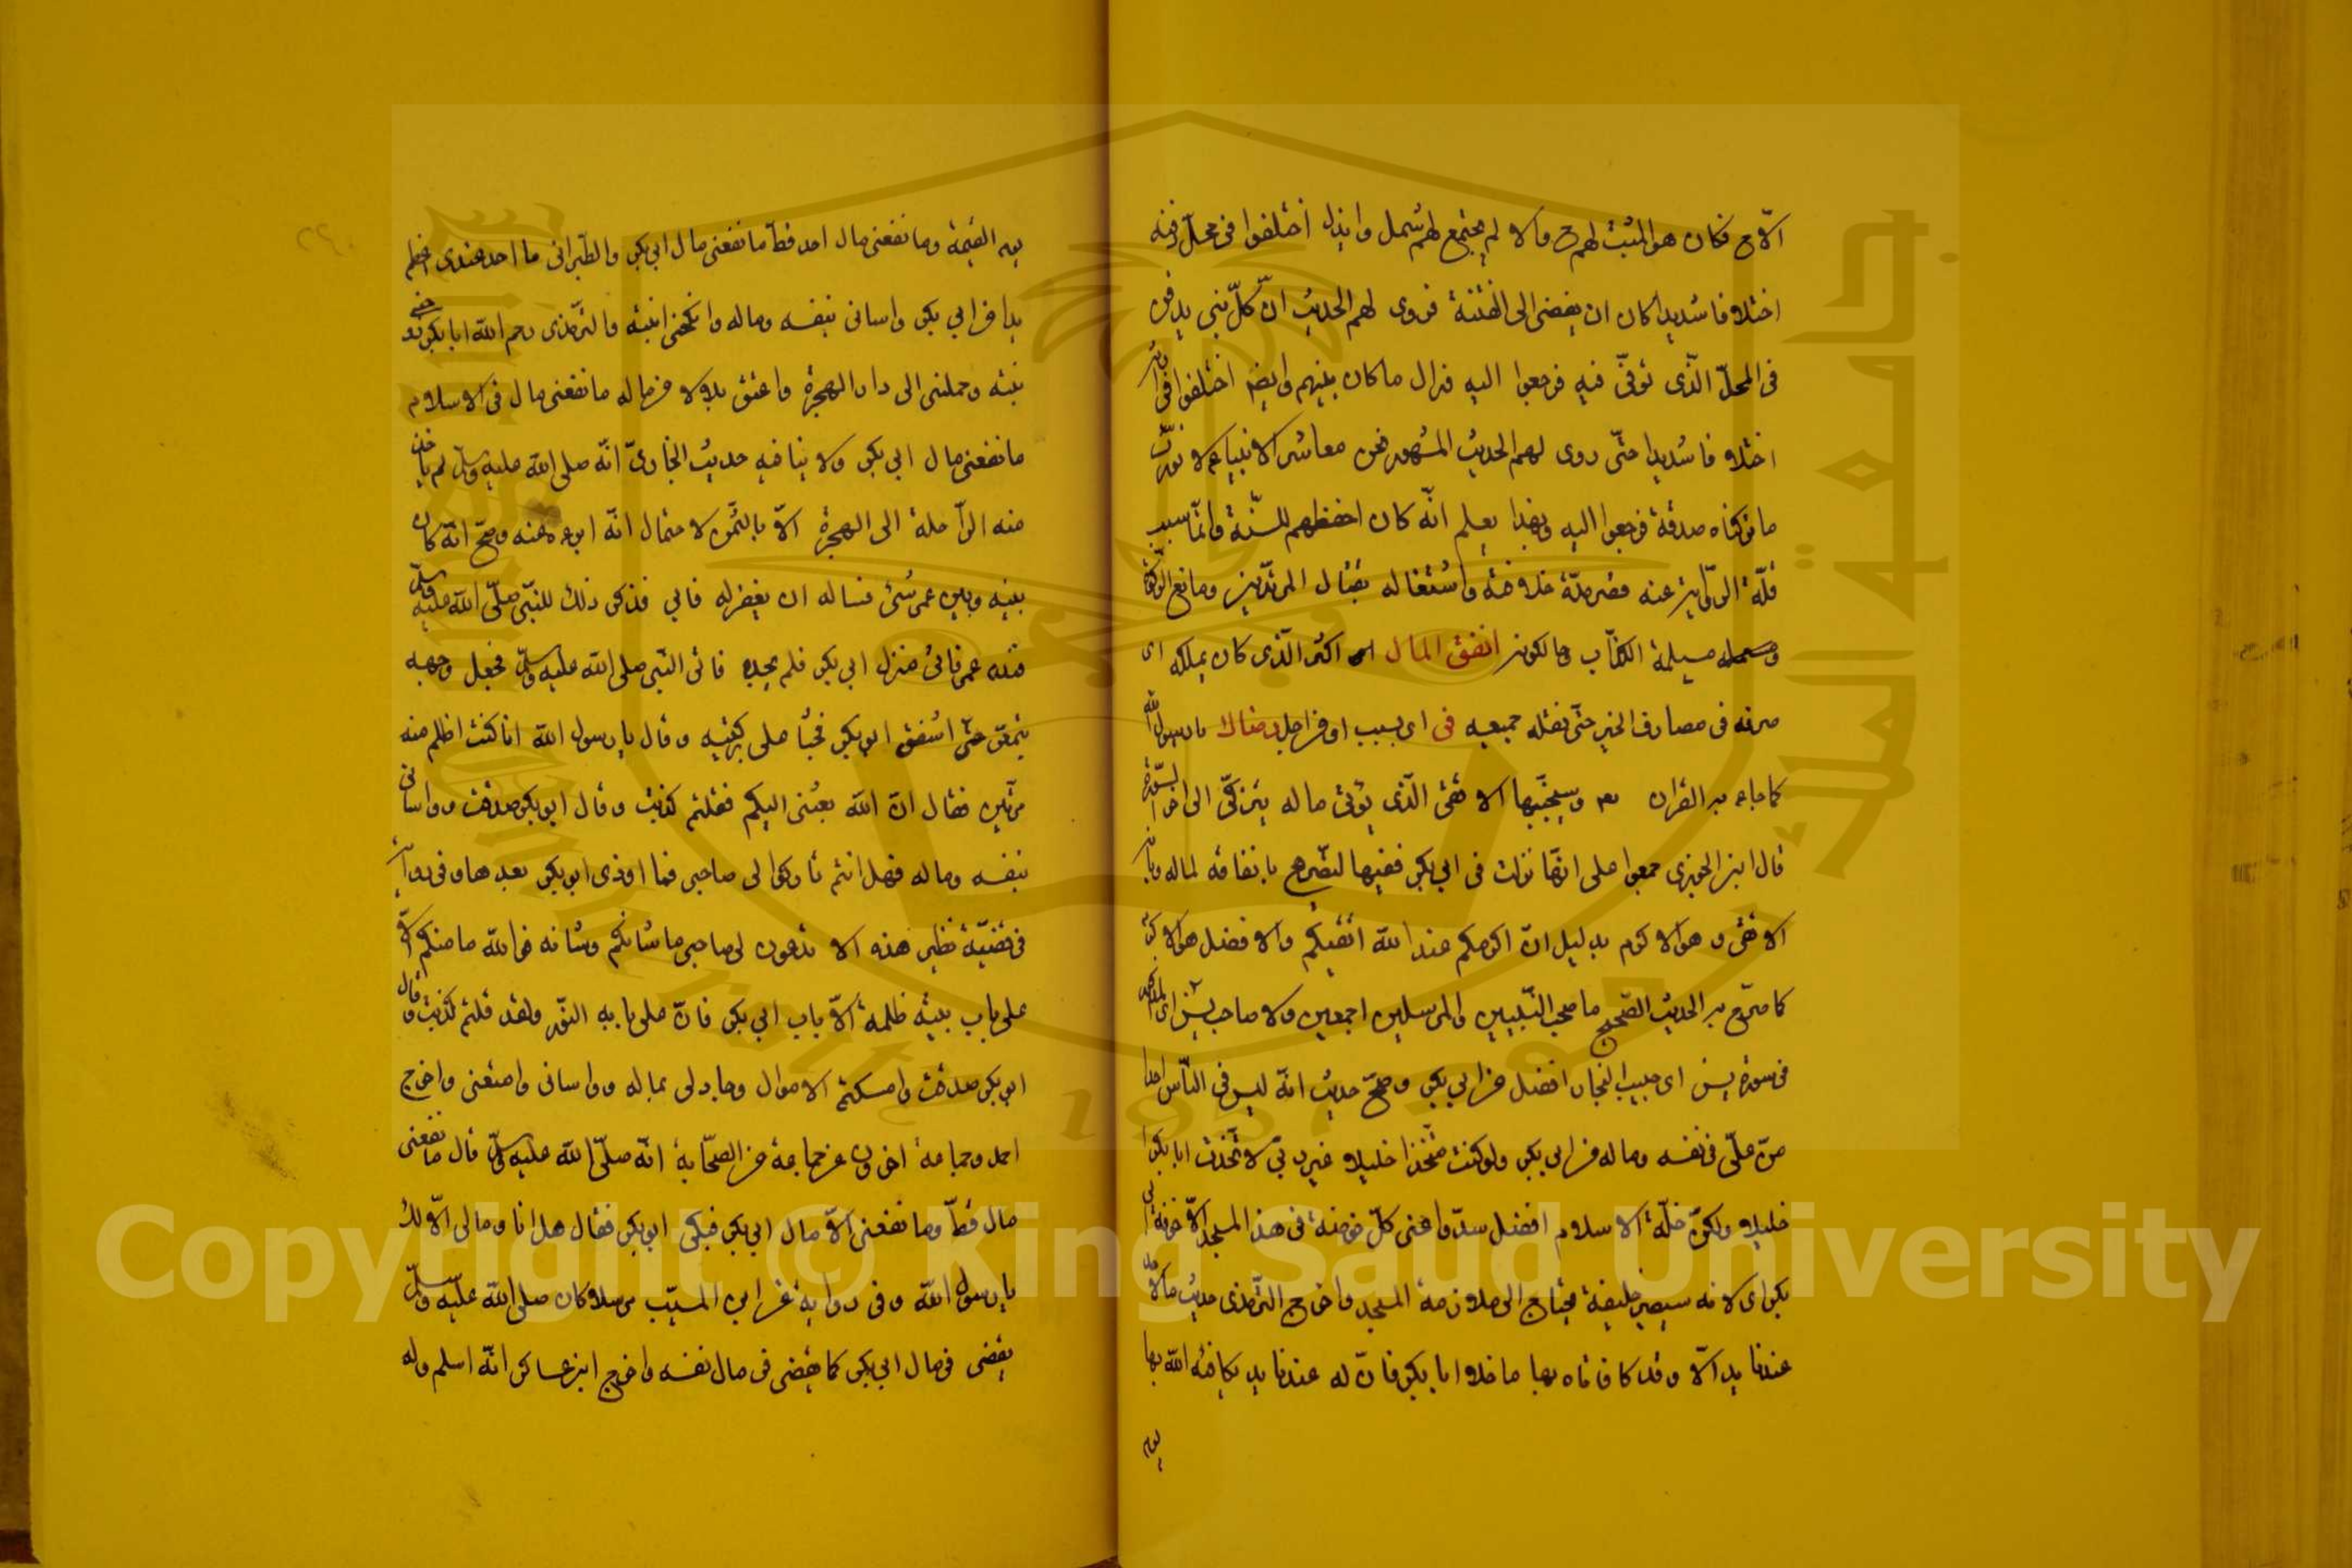 الآح فكان هو المثبت لهم ح والا لم يجتمع لهم شمل وايذل اختلفوا فى محل دفنه
اختلافا شديدا كان ان يفضى الى الفتنة فروى لهم الحديث ان كلّ نبى يدفن
فى المحلّ الّذى توفّى فيه فرجعوا اليه فزال ما كان بينهم وايضا اختلفوا فى ارثه
اختلافا شديدا حتّى روى لهم الحديث المشهور نحن معاشر الانبياء لا نورث
ما تركناه صدقة فرجعوا اليه وبهذا يعلم انّه كان احفظهم للسّنّة وانّما سبب
قلّة الرّواية عنه قصر مدّة خلافته واشتغاله بقتال المرتدّين ومانع الزكاة
مسيلمة الكذّاب انفق المال اى اكثر الّذى كان يملكه اى
صرفه فى مصارف الخير حتّى نفله جميعه فى اى بسبب او من اجل رضاك يا رسول الله
كما جاء القران وسيجنّبها الاتقى الّذى يؤتى ماله يتزكّى الى اخر السّورة
قال ابن الجوزى جمعوا على انّها نزلت فى ابى بكر ففيها لتصّريح بانفاقه لماله وبانه
الاتقى وهو الاكرم بدليل انّ اكرمكم عند الله اتقيكم والافضل هو الاكرم
كما صرّح الحديث الصّحيح ما صحب النّبيين والمرسلين اجمعين ولا صاحب يس
فى سورة يس اى حبيب النجار افضل من ابى بكر وصحّ حديث انّه ليس فى النّاس احد
منّ علّى فى نفسه وماله من ابى بكر ولو كنت متّخذا خليلا غير ربّى لاتّخذت ابا بكر
خليلا ولكن خلّة الاسلام افضل سدّوا عنى كلّ خوخة فى هذا المسجد الّا خوخة ابى
بكر اى لانه سيصير خليفة يحتاج الى ملازمة المسجد واخرج التّرمذى حديث ما لاحد
عندنا يد الّا وقد كافاناه بها ما خلا ابا بكر فانّ له عندنا يد يكافئه الله بها
يوم
يوم القيمة وما نفعنى مال احد قطّ ما نفعنى مال ابى بكر والطّبرانى ما احد عندى اعظم
يدا من ابى بكر واسانى بنفسه وماله وانكحنى ابنته والتّرمذى رحم الله ابا بكر زوجنى
بنته وحملنى الى دار الهجرة واعتق بلالا من ماله ما نفعنى مال فى الاسلام
ما نفعنى مال ابى بكر ولا ينافيه حديث البخارىّ انّه صلى الله عليه وسلّم لم ياخذ
منه الرّاحلة الى الهجرة الّا بالثّمن لاحتمال انّه ابرءه عنه وصحّ انّه كان
بينه وبين عمر شئ فساله ان يغفر له فابى فذكر ذلك للنبّى صلّى الله عليه وسلّم
فندم عمر فاتى منزل ابى بكر فلم يجده فاتى النّبى صلى الله عليه وسلّم فجعل وجهه
يتمعّر حتّى اشفق ابو بكر فجثا على ركبتيه وقال يا رسول الله انا كنت اظلم منه
مرّتين فقال انّ الله بعثنى اليكم فقلتم كذبت وقال ابو بكر صدقت وواسانى
بنفسه وماله فهل انتم تاركوا لى صاحبى فما اوذى ابو بكر بعدها وفى رواية
فى قضيّة نظير هذه الا تدعون لى صاحبى ما شانكم وشانه فو الله ما منكم الّا
على باب بيته ظلمة الّا باب ابى بكر فانّ على بابه النّور ولقد قلتم كذبت وقال
ابو بكر صدقت وامسكتم الاموال وجاد لى بماله وواسانى واخرج
احمد وجماعة اخرون عن جماعة من الصّحابة انّه صلّى الله عليه وسلّم قال ما نفعنى
مال قطّ وما نفعنى الّا مال ابى بكر فبكى ابو بكر فقال هل انا ومالى الّا لك
يا رسول الله وفى رواية عن ابن المسيّب مرسلا كان صلى الله عليه وسلّم
يقضى فى مال ابى بكر كما يقضى فى مال نفسه واخرج ابن عساكر انّه اسلم وله
٢٤٠
جامعة الملك سعود
King Saud University
1957
Copyright © King Saud University